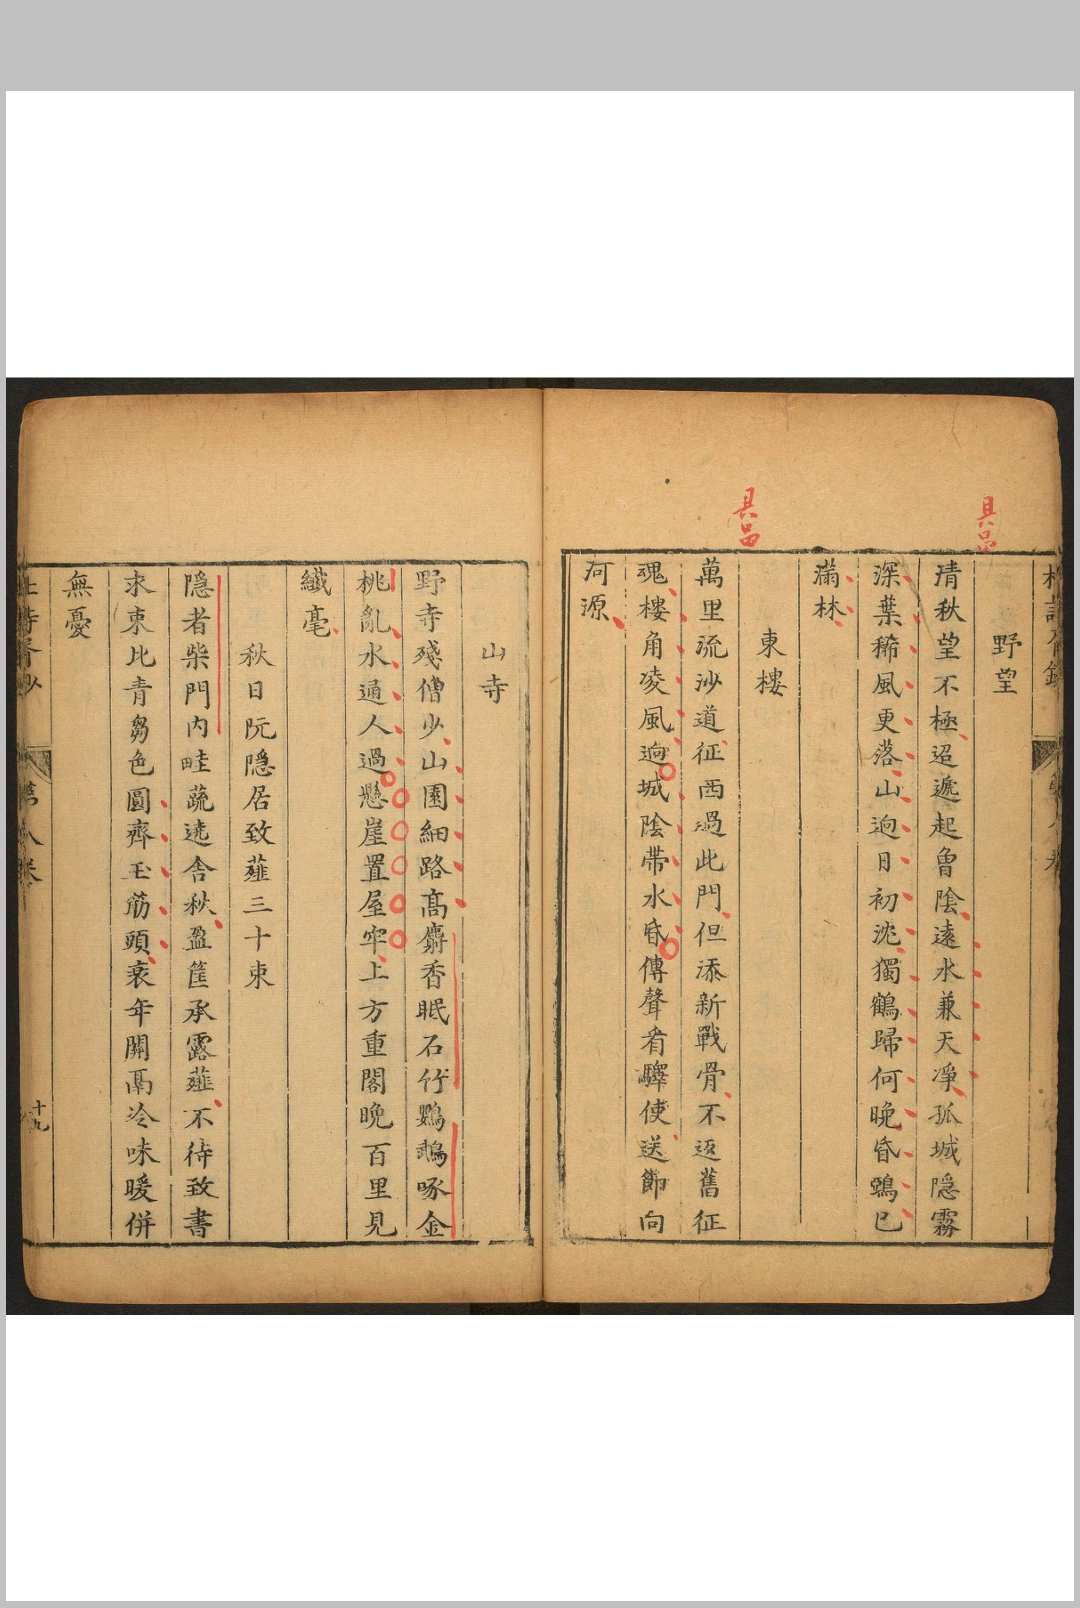 野望
清秋望不極迢遞起曾陰遠水兼天凈孤城隱霧
深葉稀風更落山逈日初沈獨鶴歸何晚昏鴉已
滿林
東樓
萬里流沙道征西過此門但添新戰骨不返舊征
魂樓角凌風逈城陰帶水昏傳聲看驛使送節向
河源
山寺
野寺殘僧少山園細路高麝香眠石竹鸚鵡啄金
桃亂水通人過懸崖置屋牢上方重閣晚百里見
纖毫
秋日阮隱居致薤三十束
隱者柴門內畦蔬遶舍秋盈筐承露薤不待致書
求束比青芻色圓齊玉筯頭衰年關鬲冷味暖併
無憂
杜詩胥鈔
第八卷
十九